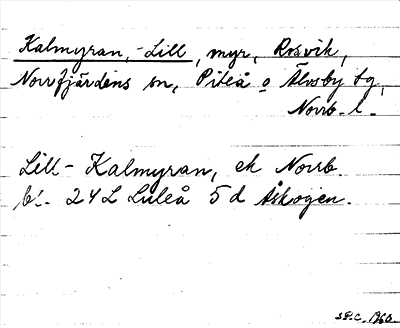 Kalmyran, -Lill, myr, Rosvik,
Norrfjärdens sn, Piteå o Älvsby tg,
Norrb. l.
Lill-Kalmyran, ek Norrb.
bl. 24L Luleå 5d Åskogen.
1960